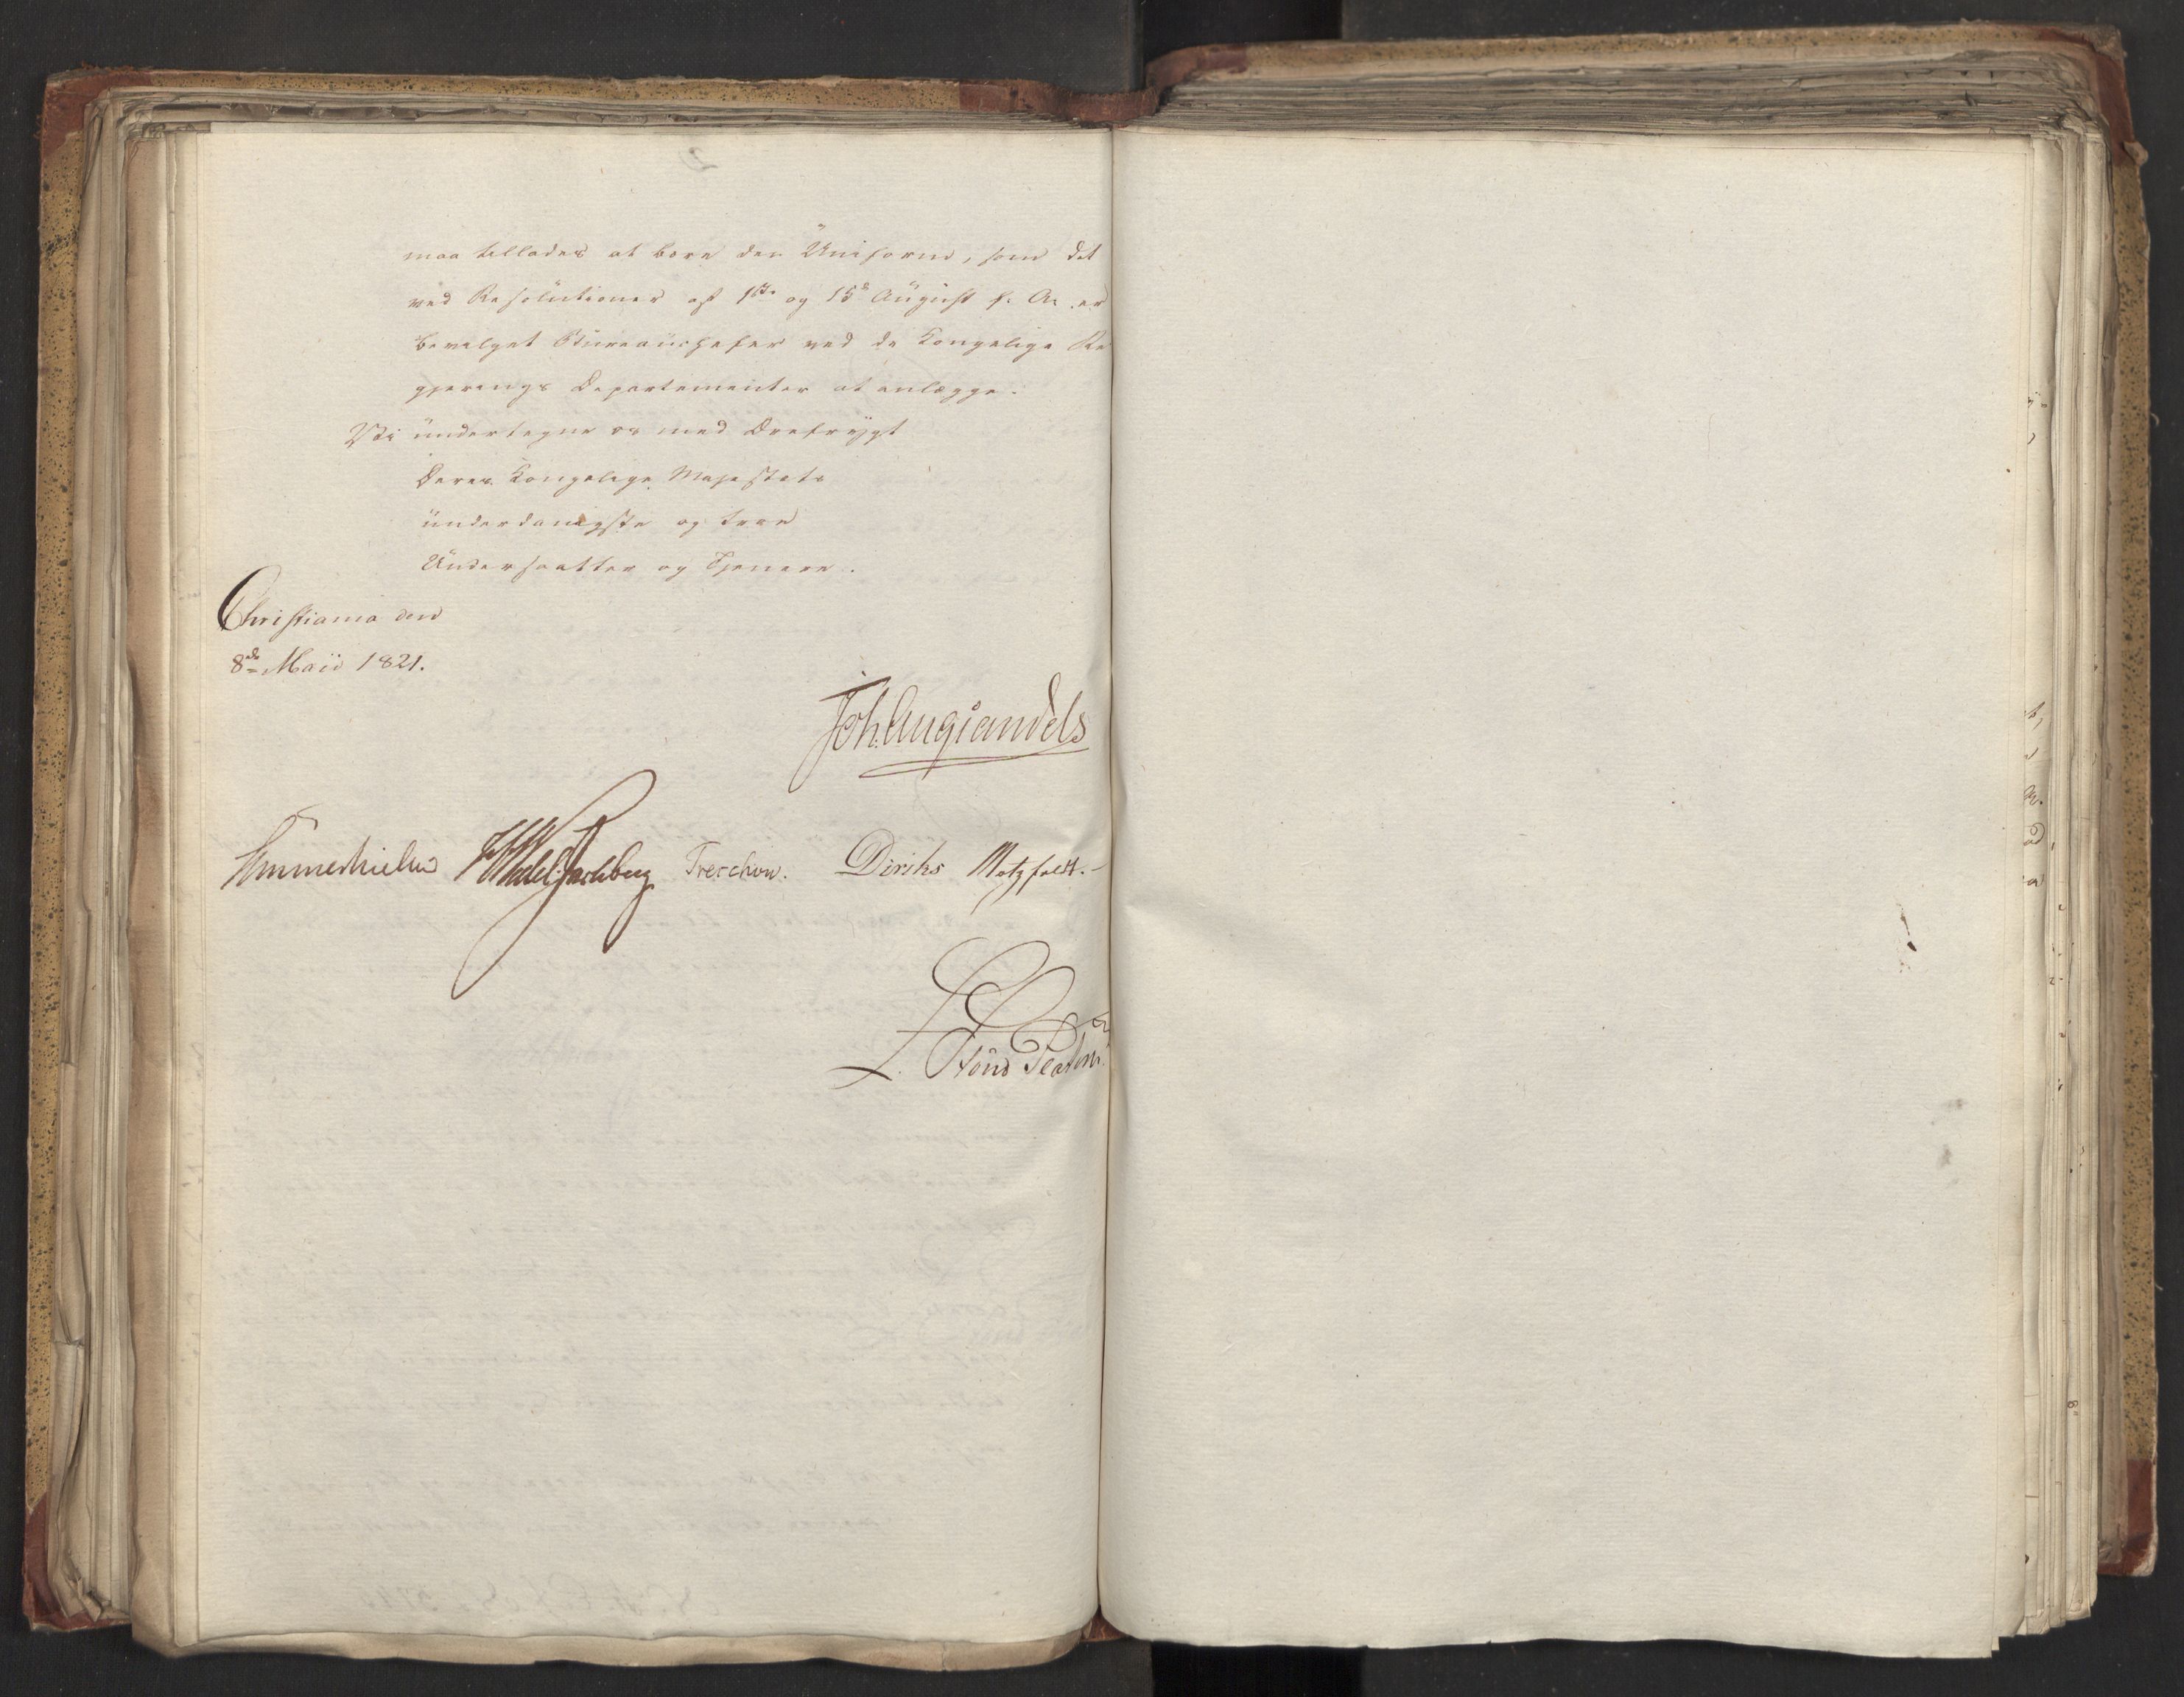 maa tillades at bære den Uniform, som det
ved Resolutioner af 1ste og 15de August f. A. er
bevilget Bureauchefer ved de Kongelige Re
gjerings Departementer at anlægge.
Vi undertegne os med Ærefrygt
Deres Kongelige Majestæts
underdanigste og troe
Undersaatter og Tjenere.
Christiania den
8de Maii 1821.
Joh. Aug. Sandels
Sommerhielm Wedel Jarlsberg Treschow. Diriks Motzfeldt.